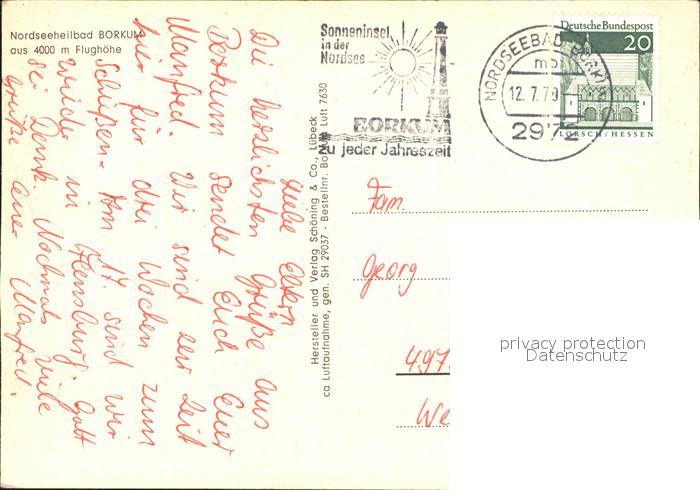 Nordseeheilbad BORKUM
aus 4000 m Flughöhe
Liebe Eltern
Die herzlichsten Grüße aus
Borkum sendet Euch Euer
Manfred. Wir sind zur Zeit
hier für drei Wochen zum
Schießen. Am 17. sind wir
wieder in Flensburg. Gott
sei Dank. Nochmals viele
Grüße euer Manfred.
Hersteller und Verlag Schöning & Co., Lübeck
ca Luftaufnahme, gen. SH 29037 - Bestellnr. Bo Luft 7630
Sonneninsel
in der
Nordsee
BORKUM
zu jeder Jahreszeit
NORDSEEBAD BORKUM
mb
12.7.7
2972
Deutsche Bundespost
20
LORSCH/HESSEN
Fam.
Georg
497
We
privacy protection
Datenschutz